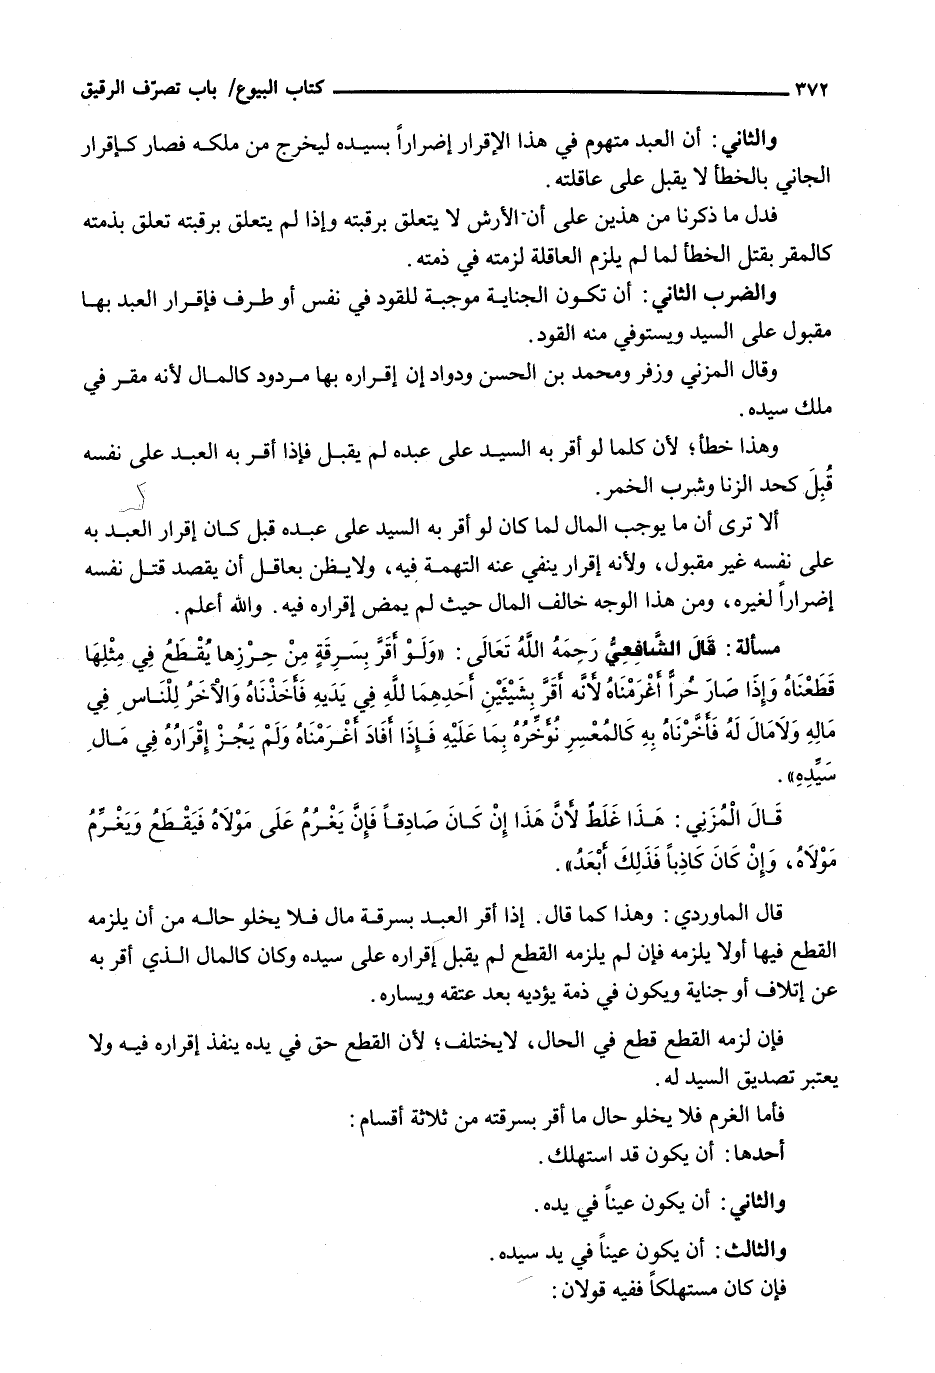 ٣٧٢ ــــــــــــــــــــــــــــــــــــــــ كتاب البيوع/ باب تصرّف الرقيق
والثاني: أن العبد متهوم في هذا الإقرار إضراراً بسيده ليخرج من ملكه فصار كإقرار
الجاني بالخطأ لا يقبل على عاقلته.
فدل ما ذكرنا من هذين على أن الأرش لا يتعلق برقبته وإذا لم يتعلق برقبته تعلق بذمته
كالمقر بقتل الخطأ لما لم يلزم العاقلة لزمته في ذمته.
والضرب الثاني: أن تكون الجناية موجبة للقود في نفس أو طرف فإقرار العبد بها
مقبول على السيد ويستوفي منه القود.
وقال المزني وزفر ومحمد بن الحسن ودواد إن إقراره بها مردود كالمال لأنه مقر في
ملك سيده.
وهذا خطأ؛ لأن كلما لو أقر به السيد على عبده لم يقبل فإذا أقر به العبد على نفسه
قُبِلَ كحد الزنا وشرب الخمر.
ألا ترى أن ما يوجب المال لما كان لو أقر به السيد على عبده قبل كان إقرار العبد به
على نفسه غير مقبول، ولأنه إقرار ينفي عنه التهمة فيه، ولايظن بعاقل أن يقصد قتل نفسه
إضراراً لغيره، ومن هذا الوجه خالف المال حيث لم يمض إقراره فيه. والله أعلم.
مسألة: قَالَ الشَّافِعِيُّ رَحِمَهُ اللَّهُ تَعَالَى: «وَلَوْ أَقَرَّ بِسَرِقَةٍ مِنْ حِرْزِها يُقْطَعُ فِي مِثْلِهَا
قَطَعْنَاهُ وَإِذَا صَارَ حُراً أَغْرَمْنَاهُ لأَنَّه أَقَرَّ بِشَيْئَيْنِ أَحَدِهِمَا لِلَّهِ فِي يَدَيهِ فَأَخَذْنَاهُ وَالْآخَرُ لِلْنَاسِ فِي
مَالِهِ وَلَامَالَ لَهُ فَأَخَّرْنَاهُ بِهِ كَالمُعْسِرِ نُوَّخِّرُهُ بِمَا عَلَيْهِ فَإِذَا أَفَادَ أَغْرَمْنَاهُ وَلَمْ يَجُزْ إِقْرَارُهُ فِي مَالِ
سَيِّدِهِ».
قَالَ الْمُزَنِي: هَذَا غَلَطٌ لأَنَّ هَذَا إِنْ كَانَ صَادِقاً فَإِنَّ يَغْرُمُ عَلَى مَوْلَاهُ فَيَقْطَعُ وَيَغْرِّمُ
مَوْلَاهُ، وَإِنْ كَانَ كَاذِباً فَذَلِكَ أَبْعَدُ».
قال الماوردي: وهذا كما قال. إذا أقر العبد بسرقة مال فلا يخلو حاله من أن يلزمه
القطع فيها أولا يلزمه فإن لم يلزمه القطع لم يقبل إقراره على سيده وكان كالمال الذي أقر به
عن إتلاف أو جناية ويكون في ذمة يؤديه بعد عتقه ويساره.
فإن لزمه القطع قطع في الحال، لايختلف؛ لأن القطع حق في يده ينفذ إقراره فيه ولا
يعتبر تصديق السيد له.
فأما الغرم فلا يخلو حال ما أقر بسرقته من ثلاثة أقسام:
أحدها: أن يكون قد استهلك.
والثاني: أن يكون عيناً في يده.
والثالث: أن يكون عيناً في يد سيده.
فإن كان مستهلكاً ففيه قولان: